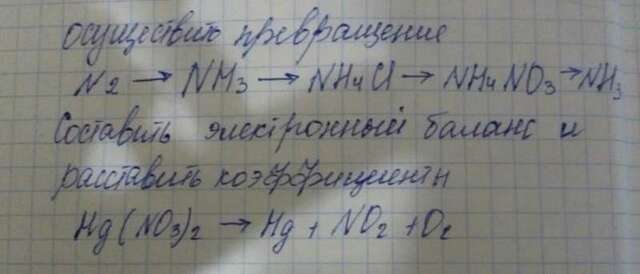 осуществить превращение
N2 → NH3 → NH4Cl → NH4NO3 → NH3
Составить электронный баланс и
расставить коэффициенты
Hg(NO3)2 → Hg + NO2 + O2